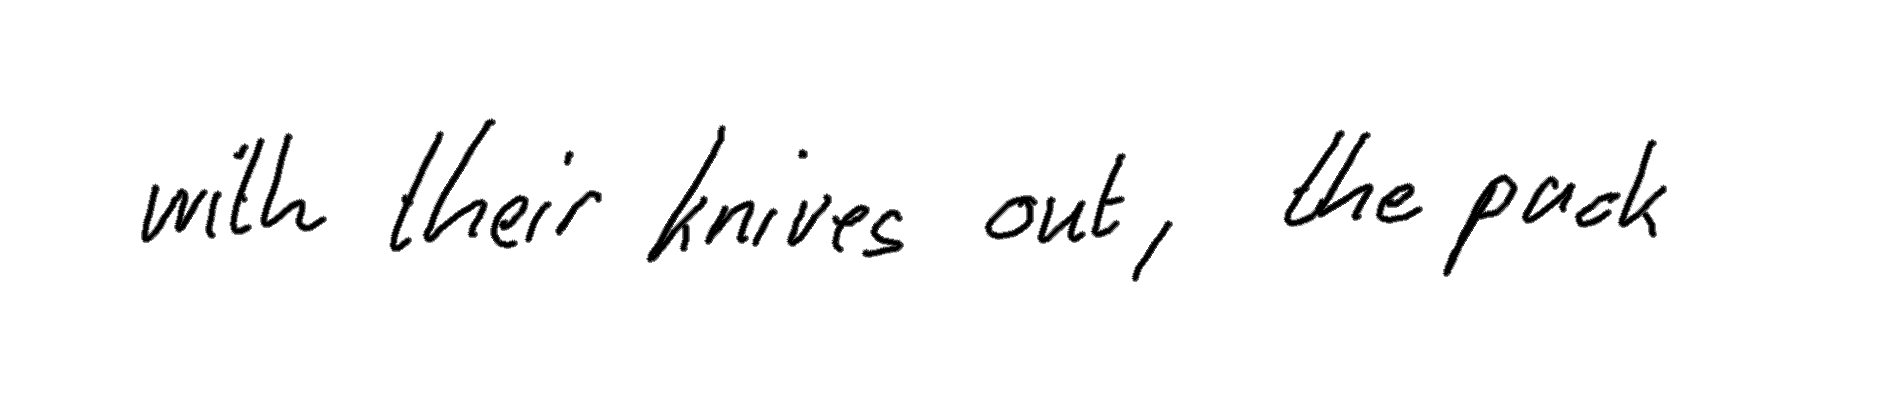 with their knives out, the pack